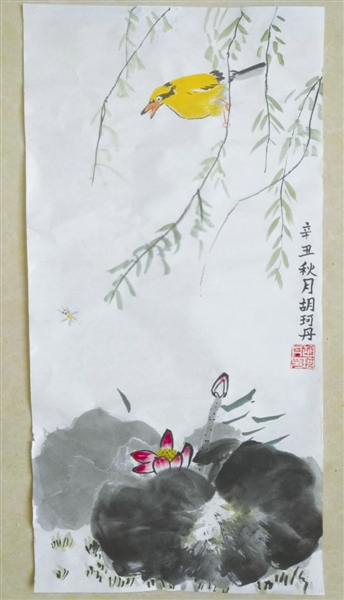 辛丑秋月胡珂丹